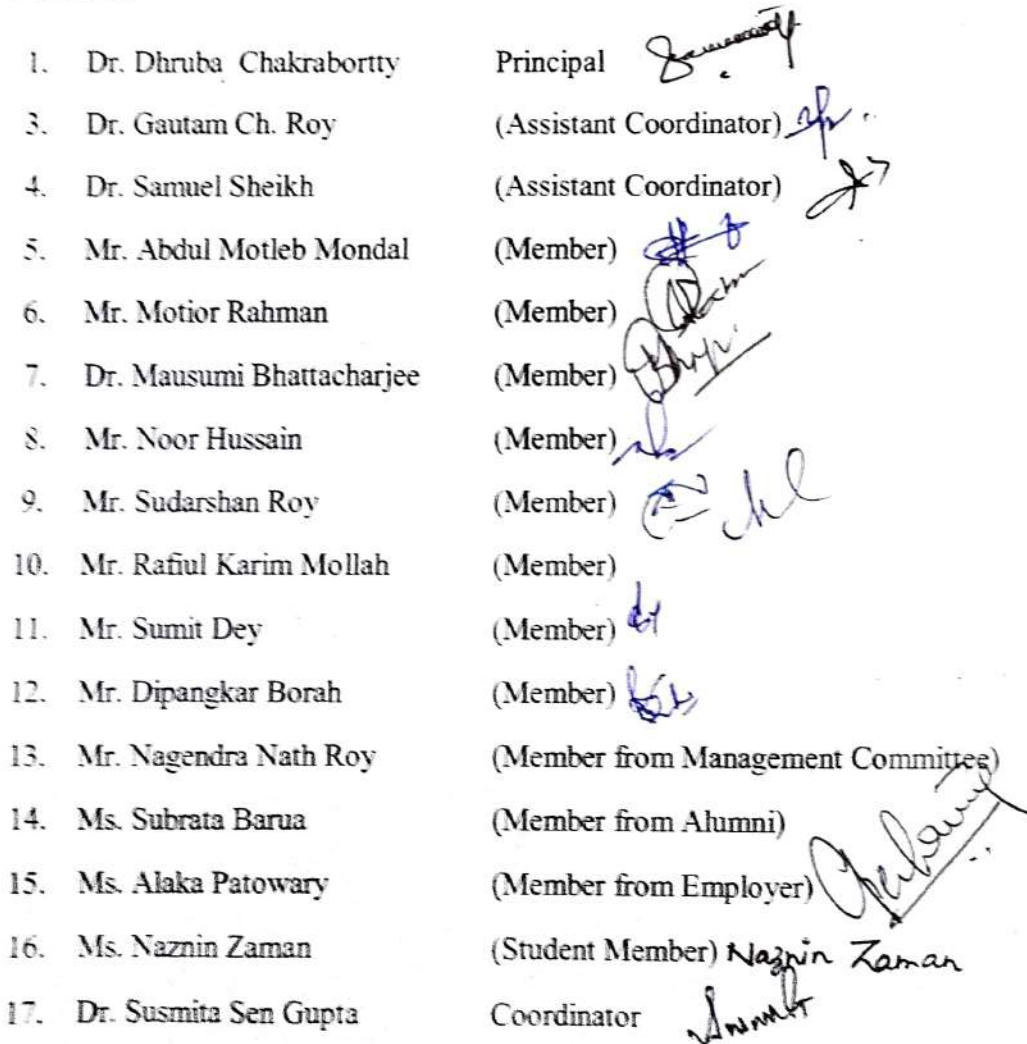 1. Dr. Dhruba Chakrabortty Principal
3. Dr. Gautam Ch. Roy (Assistant Coordinator)
4. Dr. Samuel Sheikh (Assistant Coordinator)
5. Mr. Abdul Motleb Mondal (Member)
6. Mr. Motior Rahman (Member)
7. Dr. Mausumi Bhattacharjee (Member)
8. Mr. Noor Hussain (Member)
9. Mr. Sudarshan Roy (Member)
10. Mr. Rafiul Karim Mollah (Member)
11. Mr. Sumit Dey (Member)
12. Mr. Dipangkar Borah (Member)
13. Mr. Nagendra Nath Roy (Member from Management Committee)
14. Ms. Subrata Barua (Member from Alumni)
15. Ms. Alaka Patowary (Member from Employer)
16. Ms. Naznin Zaman (Student Member) Naznin Zaman
17. Dr. Susmita Sen Gupta Coordinator